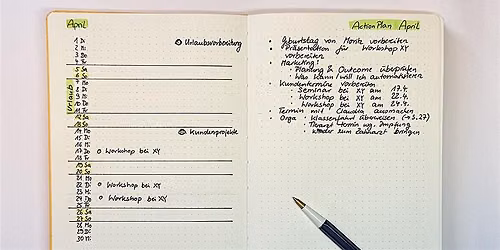 April
1 Di
2 Mi
3 Do
4 Fr
5 Sa
6 So
7 Mo
8 Di
9 Mi
10 Do
11 Fr
12 Sa
13 So
14 Mo
15 Di
16 Mi
17 Do
18 Fr
19 Sa
20 So
21 Mo
22 Di
23 Mi
24 Do
25 Fr
26 Sa
27 So
28 Mo
29 Di
30 Mi
Urlaub
Urlaubsvorbereitung
Kundenprojekte
Workshop bei XY
Workshop bei XY
Workshop bei XY
Action Plan April
Geburtstag von Moritz vorbereiten
Präsentation für Workshop XY
vorbereiten
Marketing:
Planung & Outcome überprüfen
Was kann/will ich automatisieren
Kundentermine vorbereiten
Seminar bei XY am 17.4.
Workshop bei XY am 22.4.
Workshop bei XY am 24.4.
Termin mit Claudia ausmachen
Orga
Klassenfahrt überweisen (→ S. 27)
Tierarzt Termin wg. Impfung
Kinder zum Zahnarzt bringen